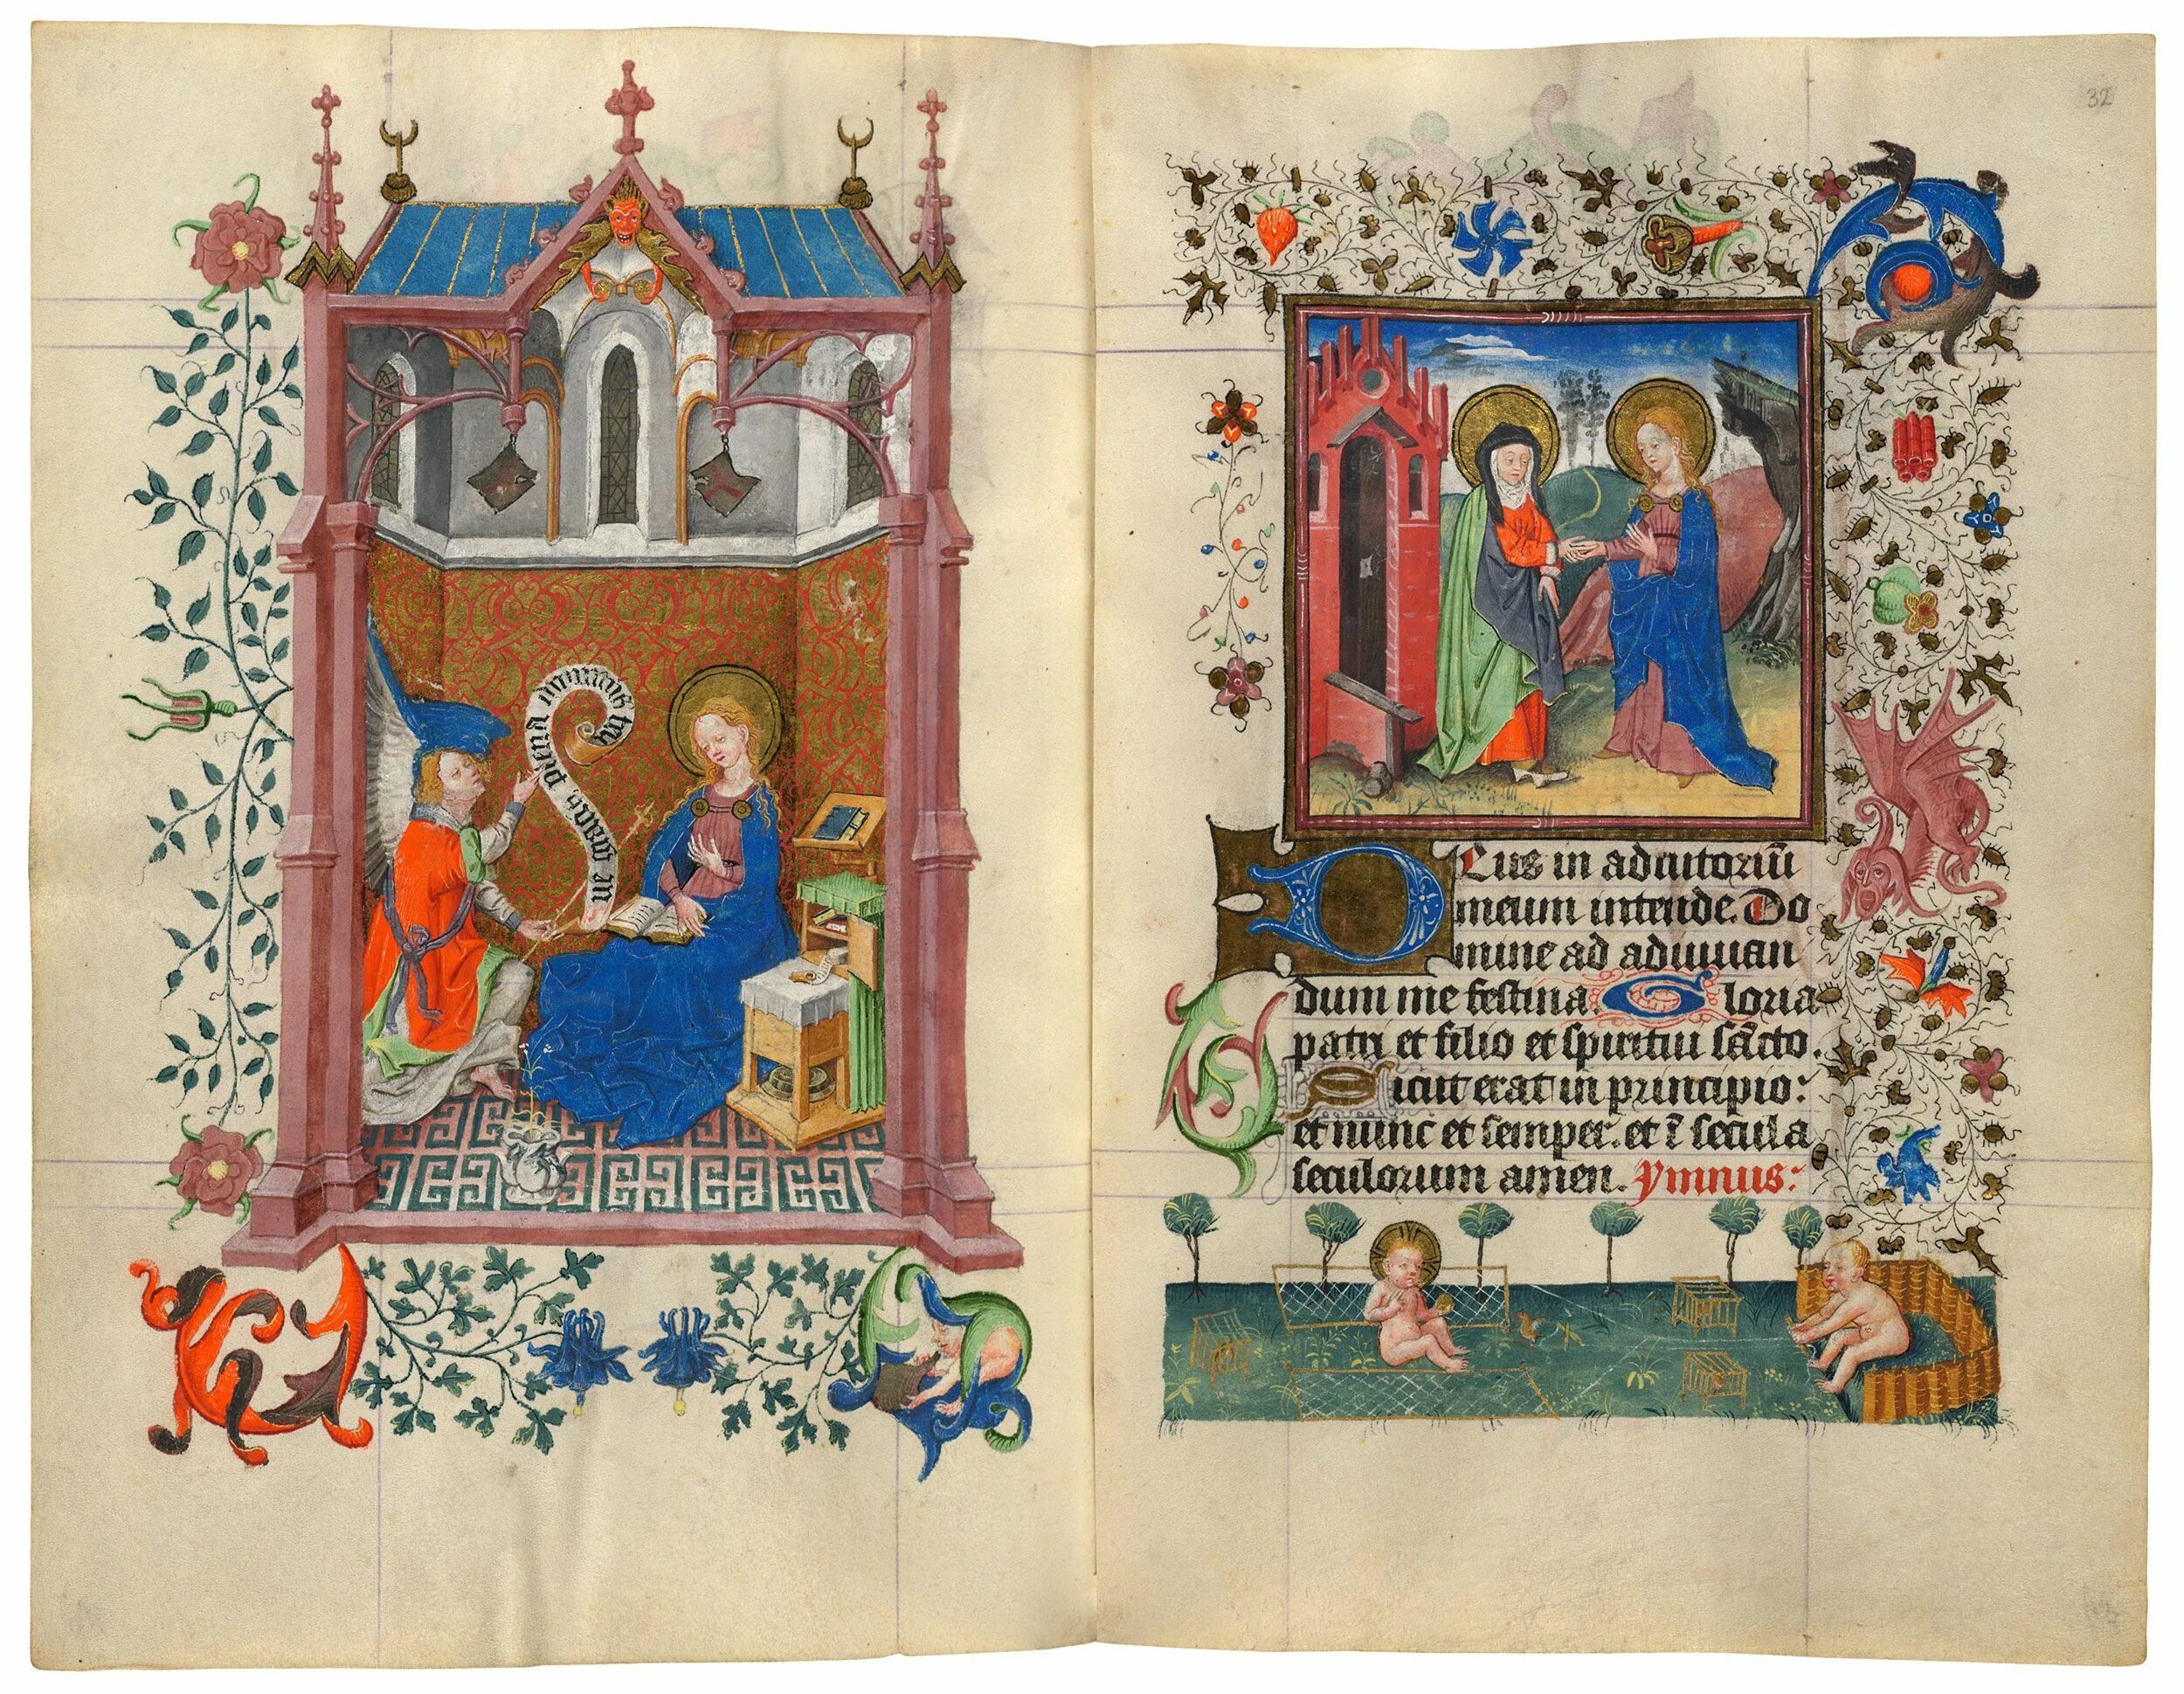 aue maria plena dominus
32
Deus in adiutoriū
meum intende. Do
mine ad adiuuan
dum me festina. Gloria
patri et filio et spiritui sc̄to.
Sicut erat in principio:
et nunc et semper. et ī secula
seculorum amen. ymnus: